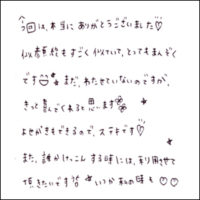 今回は本当にありがとうございました♡
似顔絵もすごく似ていて、とってもまんぞく
です まだ、わたせていないのですが、
きっと喜んでくれると思います
よせがきもできるので、ステキです♡
また、誰かけっこんする時には、利用させて
頂きたいです!! いつか私の時も